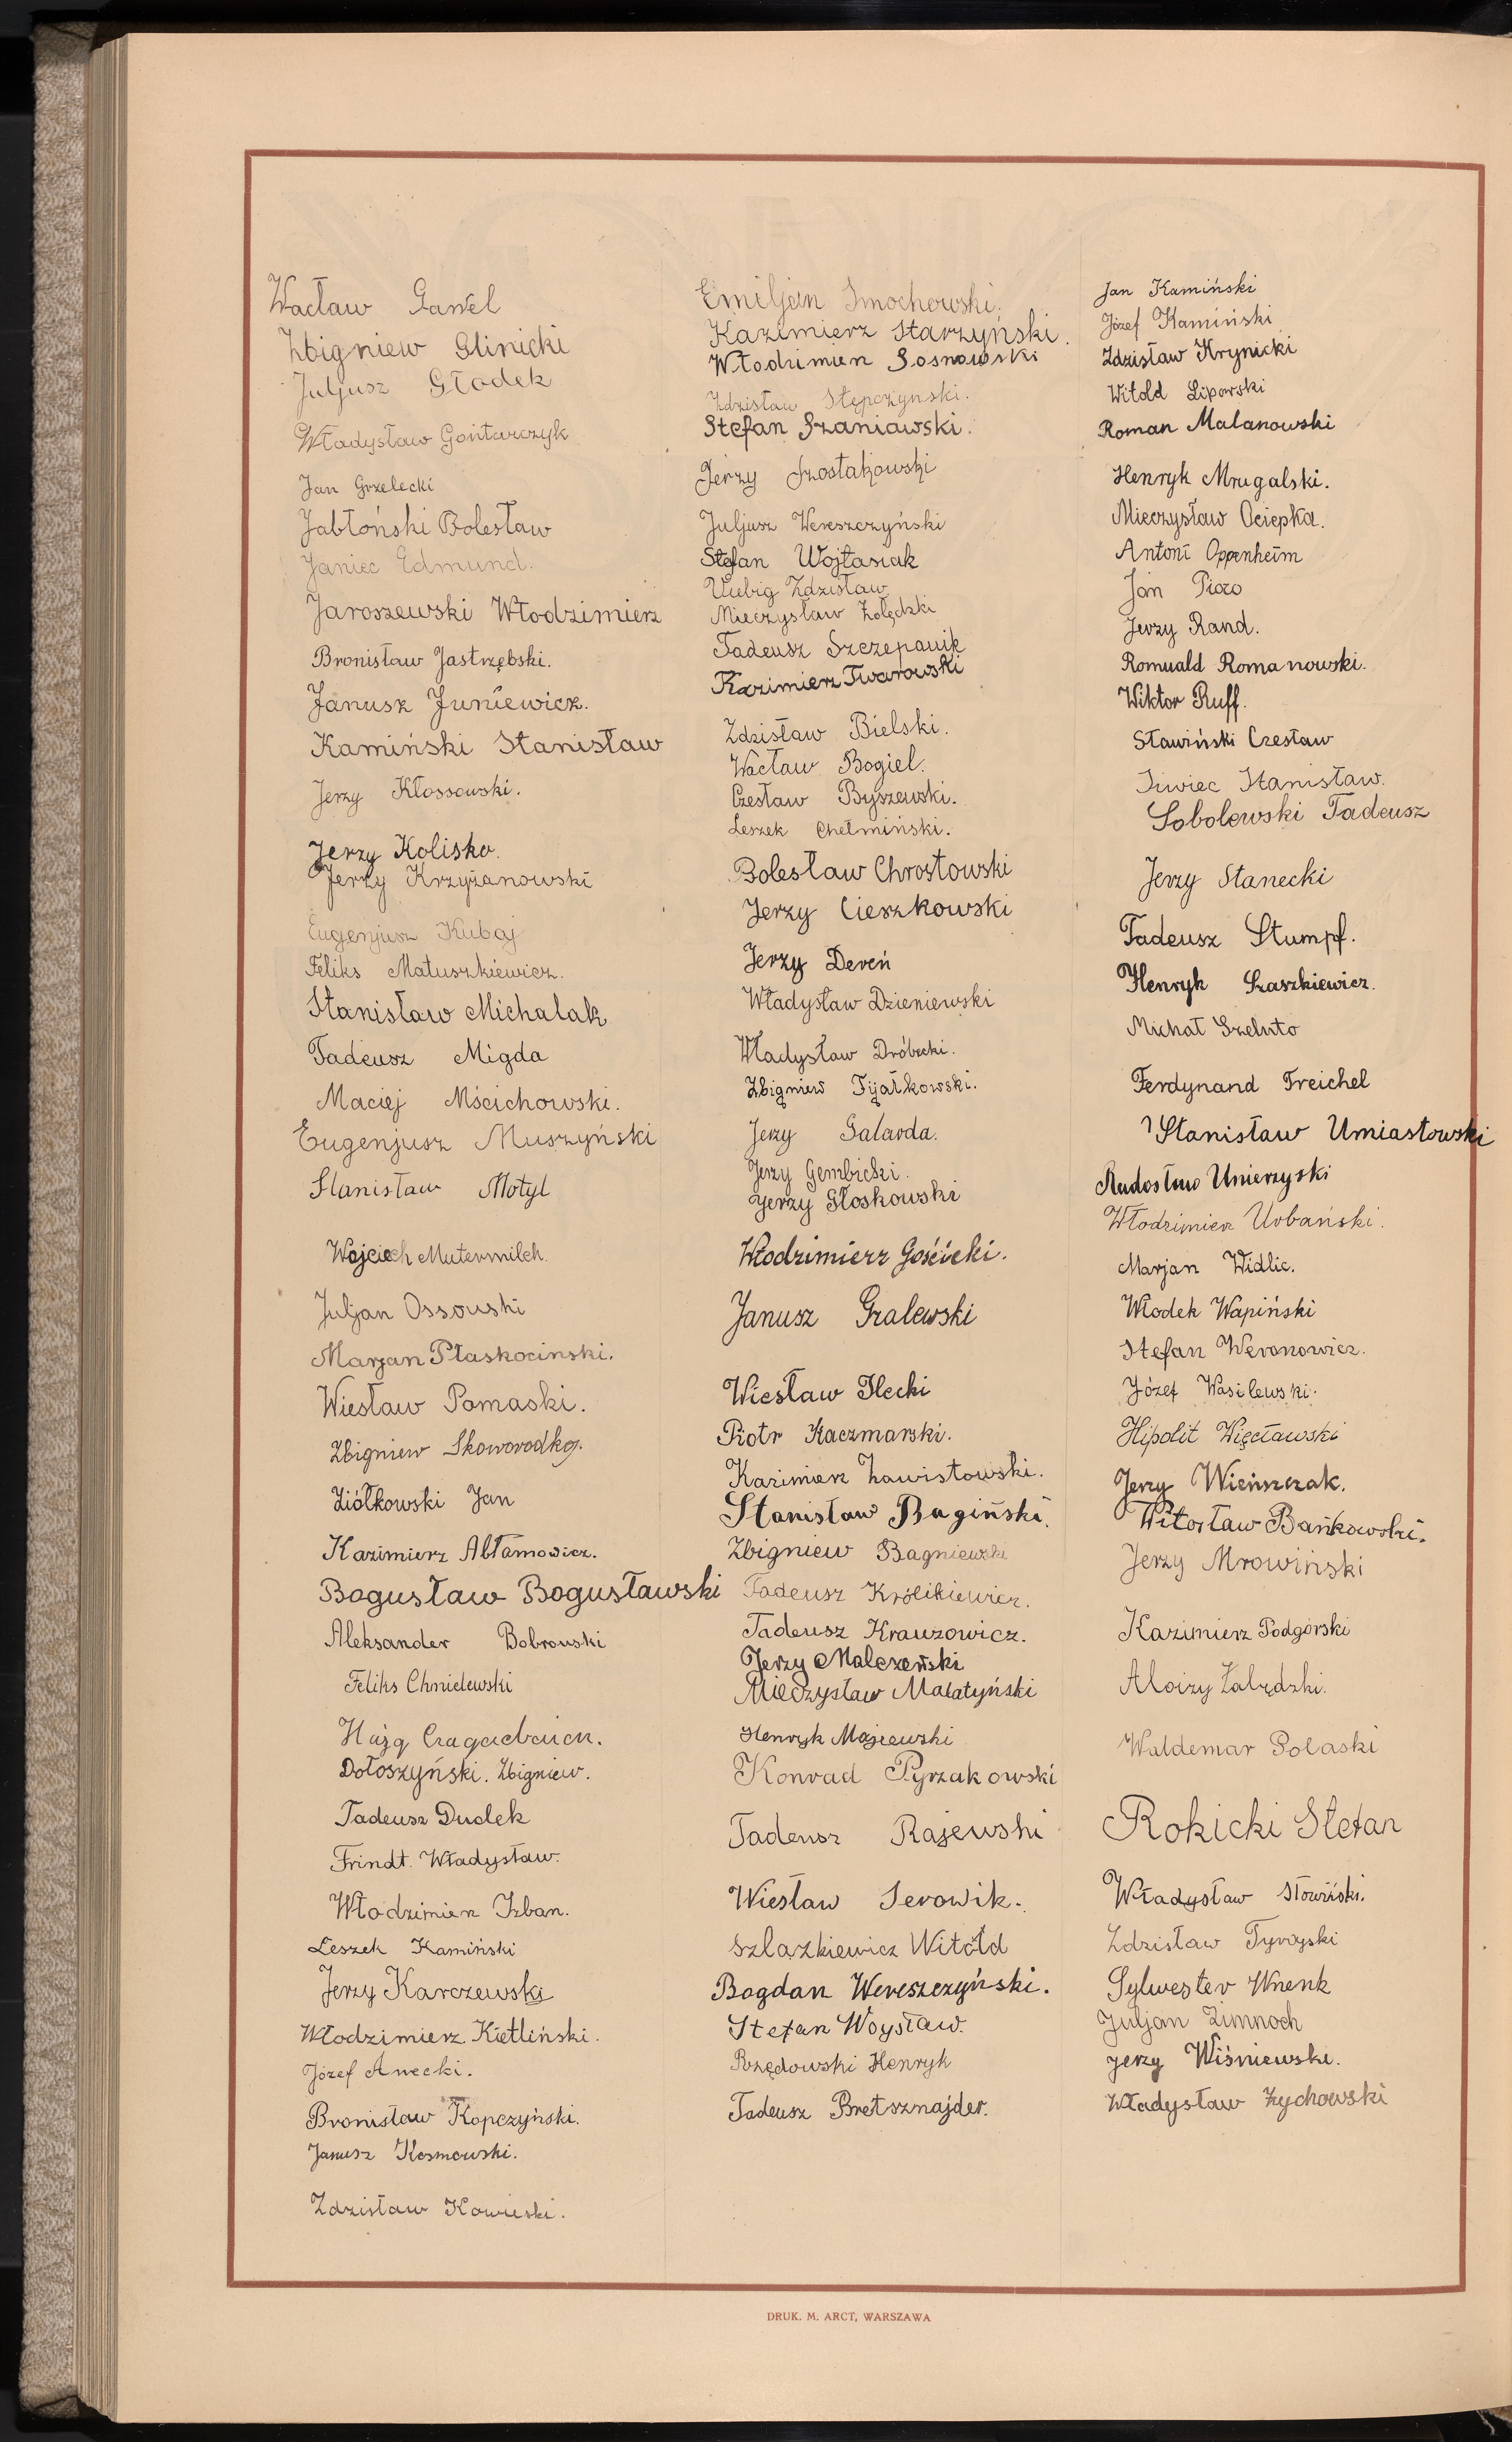 Wacław Gaweł
Zbigniew Glinicki
Juljusz Głodek
Władysław Gontarczyk
Jan Grzelecki
Jabłoński Bolesław
Janiec Edmund.
Jaroszewski Włodzimierz
Bronisław Jastrzębski.
Janusz Juniewicz.
Kamiński Stanisław
Jerzy Kłossowski.
Jerzy Kolisko.
Jerzy Krzyżanowski
Eugenjusz Kubaj
Feliks Matuszkiewicz.
Stanisław Michalak
Tadeusz Migda
Maciej Mścichowski.
Eugenjusz Muszyński
Stanisław Motyl
Wojciech Mutermilch.
Juljan Ossowski
Marjan Płaskociński.
Wiesław Pomaski.
Zbigniew Skoworodko.
Ziółkowski Jan
Kazimierz Abłamowicz.
Bogusław Bogusławski
Aleksander Bobrowski
Feliks Chmielewski
Dołoszyński. Zbigniew.
Tadeusz Dudek
Frindt. Władysław.
Włodzimierz Izban.
Leszek Kamiński
Jerzy Karczewski
Włodzimierz Kietliński.
Józef
Bronisław Kopczyński.
Janusz Kosmowski.
Zdzisław
Emiljan Smochowski.
Kazimierz Starzyński.
Włodzimierz Sosnowski
Zdzisław Stępczyński.
Stefan Szaniawski.
Jerzy Szostakowski
Juljusz Wereszczyński
Stefan Wojtasiak
Zdzisław
Mieczysław Żołędzki
Tadeusz Szczepanik
Kazimierz Twarowski
Zdzisław Bielski.
Wacław Bogiel.
Czesław Byszewski.
Leszek Chełmiński.
Bolesław Chrostowski
Jerzy Cieszkowski
Jerzy Dereń
Władysław Dzieniewski
Władysław Dróbecki.
Zbigniew Fijałkowski.
Jerzy Galarda.
Jerzy Gembicki.
Jerzy Głoskowski
Włodzimierz Gościcki.
Janusz Gralewski
Wiesław Ilecki
Piotr Kaczmarski.
Kazimierz Zawistowski.
Stanisław Bagiński.
Zbigniew Bagniewski
Tadeusz Królikiewicz.
Tadeusz Krauzowicz.
Jerzy Malczewski
Mieczysław Małatyński
Henryk Majewski
Konrad Pyrzakowski
Tadeusz Rajewski
Wiesław Serowik.
Szlazkiewicz Witold
Bogdan Wereszczyński.
Stefan Woysław.
Rzędowski Henryk
Tadeusz Bretsznajder.
Jan Kamiński
Józef Kamiński
Zdzisław Krynicki
Witold Lipowski
Roman Malanowski
Henryk Mrugalski.
Mieczysław Ociepka.
Antoni Oppenheim
Jan
Jerzy Rand.
Romuald Romanowski.
Wiktor Ruff.
Sławiński Czesław
Siwiec Stanisław.
Sobolewski Tadeusz
Jerzy Stanecki
Tadeusz Stumpf.
Henryk Szaszkiewicz.
Michał Szeluto
Ferdynand Treichel
Stanisław Umiastowski
Radosław Unierzyski
Włodzimierz Urbański.
Marjan Widlic.
Włodek Wapiński
Stefan Weronowicz.
Józef Wasilewski.
Hipolit Więcławski
Jerzy Wieńszczak.
Witosław Bańkowski.
Jerzy Mrowiński
Kazimierz Podgórski
Aloizy Łabędzki.
Waldemar Polaski
Rokicki Stefan
Władysław Słowiński.
Zdzisław Tyrzyski
Sylwester Wnenk
Juljan Zimnoch
Jerzy Wiśniewski.
Władysław Zychowski
DRUK. M. ARCT, WARSZAWA